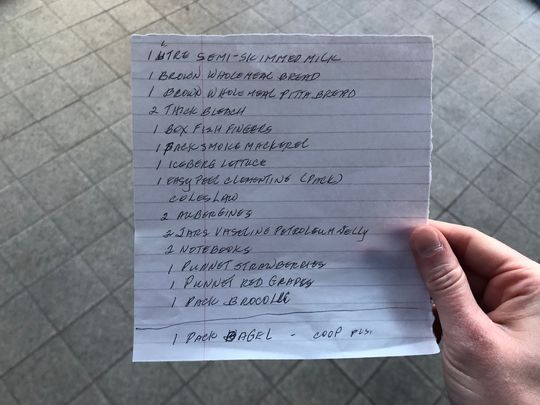 1 LITRE SEMI-SKIMMED MILK
1 BROWN WHOLEMEAL BREAD
1 BROWN WHOLEMEAL PITTA BREAD
2 THICK BLEACH
1 BOX FISH FINGERS
1 PACK SMOKE MACKEREL
1 ICEBERG LETTUCE
1 EASY PEEL CLEMENTINE (PACK)
COLESLAW
2 AUBERGINES
2 JARS VASELINE PETROLEUM JELLY
2 NOTEBOOKS
1 PUNNET STRAWBERRIES
1 PUNNET RED GRAPES
1 PACK BROCOLLI
1 PACK BAGEL - COOP